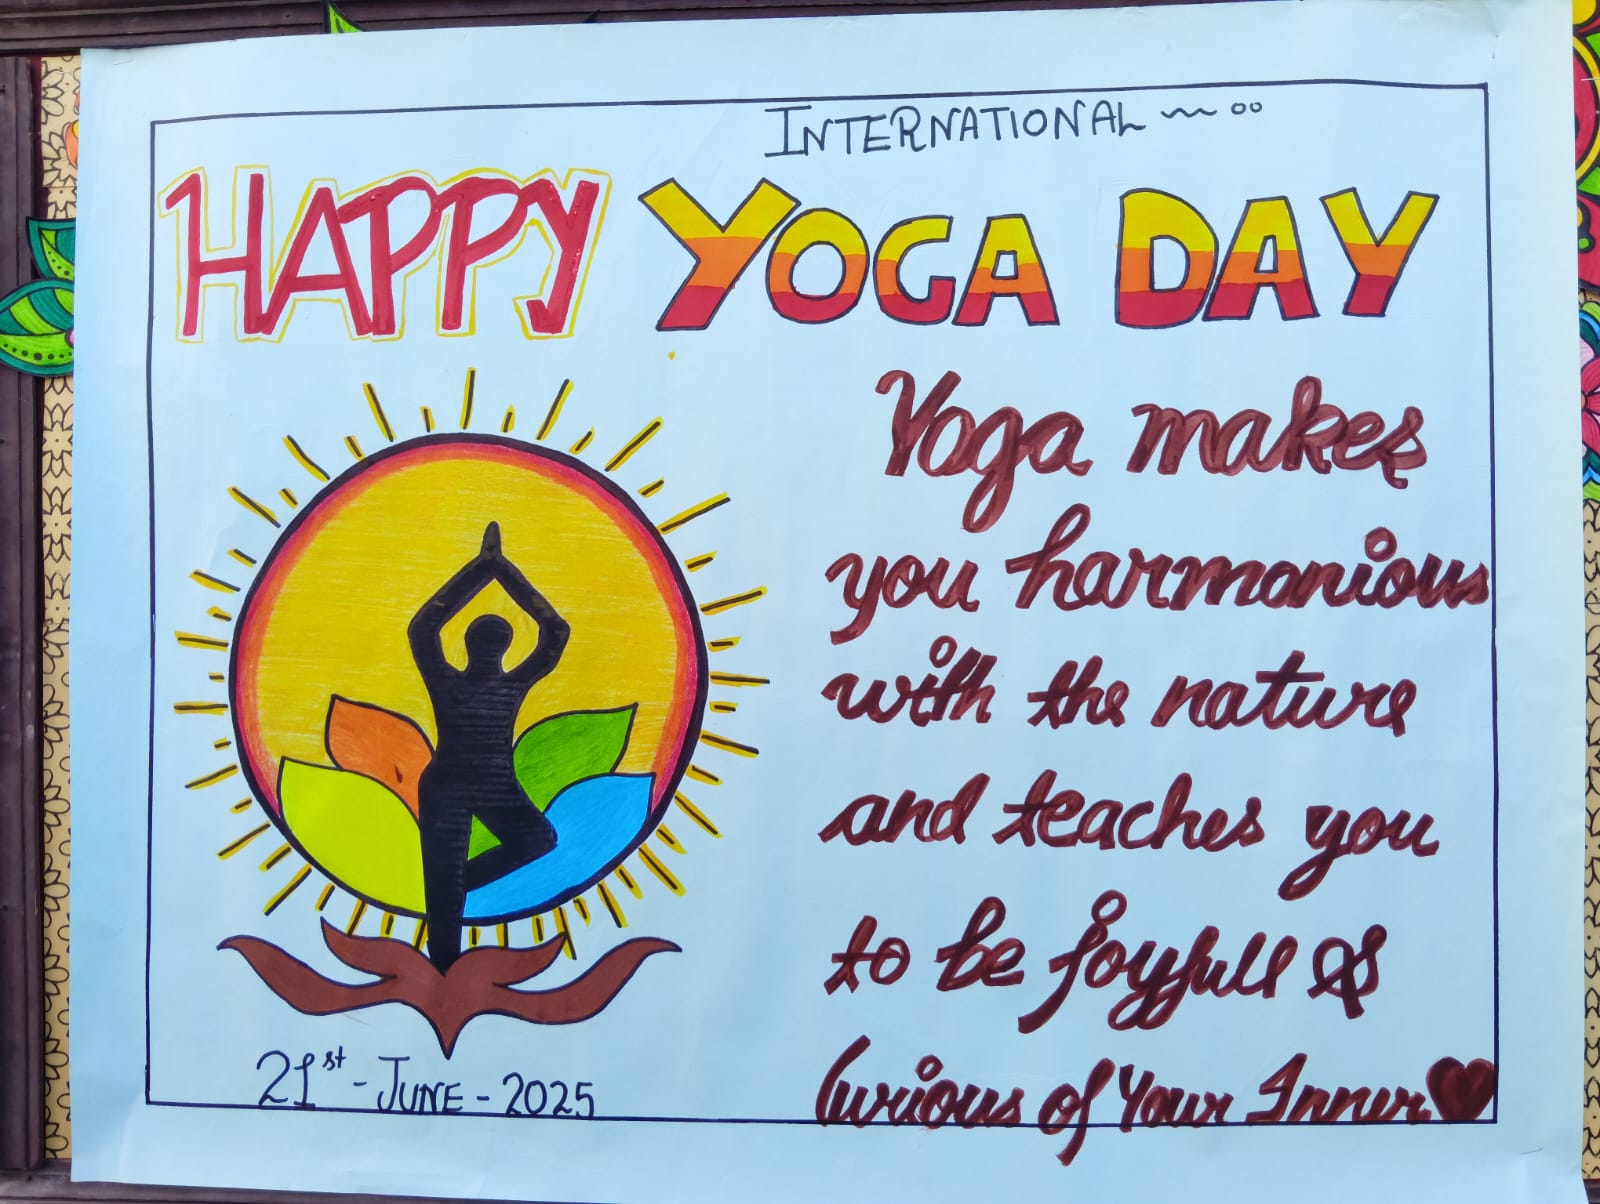 INTERNATIONAL
HAPPY YOGA DAY
Yoga makes
you harmonious
with the nature
and teaches you
to be joyfull &
Curious of Your Inner
21st - JUNE - 2025